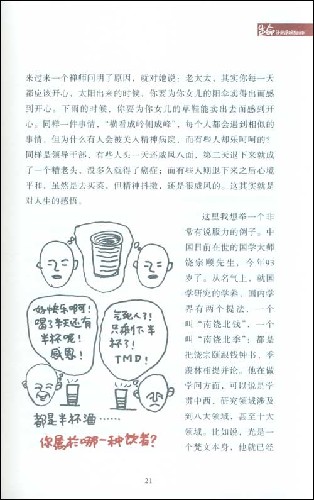 来过来一个禅师问明了原因，就对她说：老太太，其实你每一天
都应该开心，太阳出来的时候，你要为你女儿的阳伞卖得出而感
到开心。下雨的时候，你要为你女儿的草鞋能卖出去而感到开
心。同样一件事情，“横看成岭侧成峰”，每个人都会遇到相似的
事情，但为什么有人会被关入精神病院，而有些人却乐呵呵的？
同样是领导干部，有些人头一天还威风八面，第二天退下来就成
了一个糟老头，没多久就得了癌症；而有些人则退下来之后心境平
和，虽然是去买菜，但精神抖擞，还是很威风的。这其实就是
对人生的感悟。
这里我想举一个非
常有说服力的例子。中
国目前在世的国学大师
饶宗颐先生，今年93
岁了。从名气上，就国
学研究的学养，国内学
界有两个提法，一个
叫“南饶北钱”，一个
叫“南饶北季”；都是
把饶宗颐跟钱钟书、季
羡林相提并论。他在做
学问方面，可以说是学
贯中西，研究领域涉及
到八大领域，甚至十大
领域。比如说，光是一
个梵文本身，他就已经
好快乐啊！
喝了半天还有
半杯呢！
感恩！
气死人了！
只剩下半
杯了！
TMD！
都是半杯酒……
你属于哪一种饮者？
21